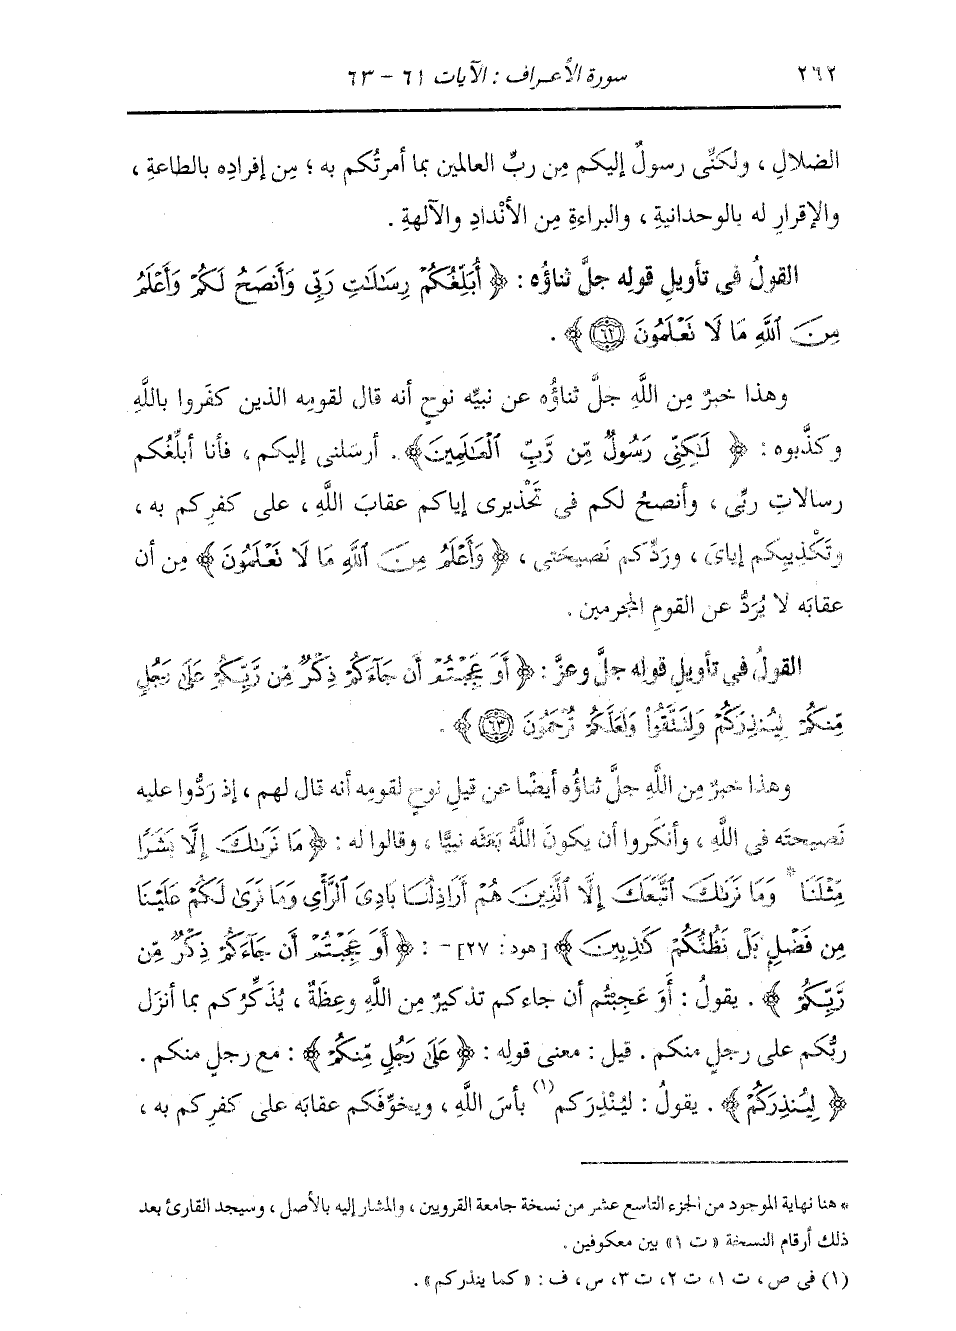 ٢٦٢ سورة الأعراف : الآيات ٦١ - ٦٣
الضلالِ ، ولكنِّى رسولٌ إليكم مِن ربِّ العالمين بما أمرتُكم به ؛ مِن إفرادِه بالطاعةِ ،
والإقرارِ له بالوحدانيةِ ، والبراءةِ مِن الأنْدادِ والآلهةِ .
القولُ فى تأويلِ قولِه جلَّ ثناؤُه : ﴿ أُبَلِّغُكُمْ رِسَٰلَٰتِ رَبِّى وَأَنصَحُ لَكُمْ وَأَعْلَمُ
مِنَ ٱللَّهِ مَا لَا نَعْلَمُونَ ﴿٦٢﴾ ﴾ .
وهذا خبرٌ مِن اللَّهِ جلَّ ثناؤُه عن نبيِّه نوحٍ أنه قال لقومِه الذين كفَروا باللَّهِ
وكذَّبوه : ﴿ لَٰكِنِّى رَسُولٌ مِّن رَّبِّ ٱلْعَٰلَمِينَ ﴾ . أرسَلنى إليكم ، فأنا أبلِّغُكم
رسالاتِ ربِّى ، وأنصحُ لكم فى تَحْذيرى إياكم عقابَ اللَّهِ ، على كفرِكم به ،
وتَكْذيبِكم إياىَ ، وردِّكم نَصيحَتى ، ﴿ وَأَعْلَمُ مِنَ ٱللَّهِ مَا لَا نَعْلَمُونَ ﴾ مِن أن
عقابَه لا يُرَدُّ عن القومِ المجرمين .
القولُ فى تأويلِ قولِه جلَّ وعزَّ : ﴿ أَوَ عَجِبْتُمْ أَن جَآءَكُمْ ذِكْرٌ مِّن رَّبِّكُمْ عَلَىٰ رَجُلٍ
مِّنكُمْ لِيُنذِرَكُمْ وَلِنَتَّقُوا۟ وَلَعَلَّكُمْ تُرْحَمُونَ ﴿٦٣﴾ ﴾ .
وهذا خبرٌ مِن اللَّهِ جلَّ ثناؤُه أيضًا عن قيلِ نوحٍ لقومِه أنه قال لهم ، إذ رَدُّوا عليه
نَصيحتَه فى اللَّهِ ، وأنكَروا أن يكونَ اللَّهُ بَعَثه نبيًّا ، وقالوا له : ﴿ مَا نَرَىٰكَ إِلَّا بَشَرًا
مِّثْلَنَا * وَمَا نَرَىٰكَ ٱتَّبَعَكَ إِلَّا ٱلَّذِينَ هُمْ أَرَاذِلُنَا بَادِىَ ٱلرَّأْىِ وَمَا نَرَىٰ لَكُمْ عَلَيْنَا
مِن فَضْلٍۭ بَلْ نَظُنُّكُمْ كَٰذِبِينَ ﴾ [هود : ٢٧] - : ﴿ أَوَ عَجِبْتُمْ أَن جَآءَكُمْ ذِكْرٌ مِّن
رَّبِّكُمْ ﴾ . يقولُ : أَوَ عَجِبْتُم أن جاءكم تذكيرٌ مِن اللَّهِ وعِظَةٌ ، يُذَكِّرُكم بما أنزَل
ربُّكم على رجلٍ منكم . قيل : معنى قولِه : ﴿ عَلَىٰ رَجُلٍ مِّنكُمْ ﴾ : مع رجلٍ منكم .
﴿ لِيُنذِرَكُمْ ﴾ . يقولُ : ليُنْذِرَكم (١) بأسَ اللَّهِ ، ويخوِّفَكم عقابَه على كفرِكم به ،
* هنا نهاية الموجود من الجزء التاسع عشر من نسخة جامعة القرويين ، والمشار إليه بالأصل ، وسيجد القارئ بعد
ذلك أرقام النسخة « ت ١» بين معكوفين .
(١) فى ص ، ت ١، ت ٢، ت ٣، س ، ف : « كما ينذركم» .